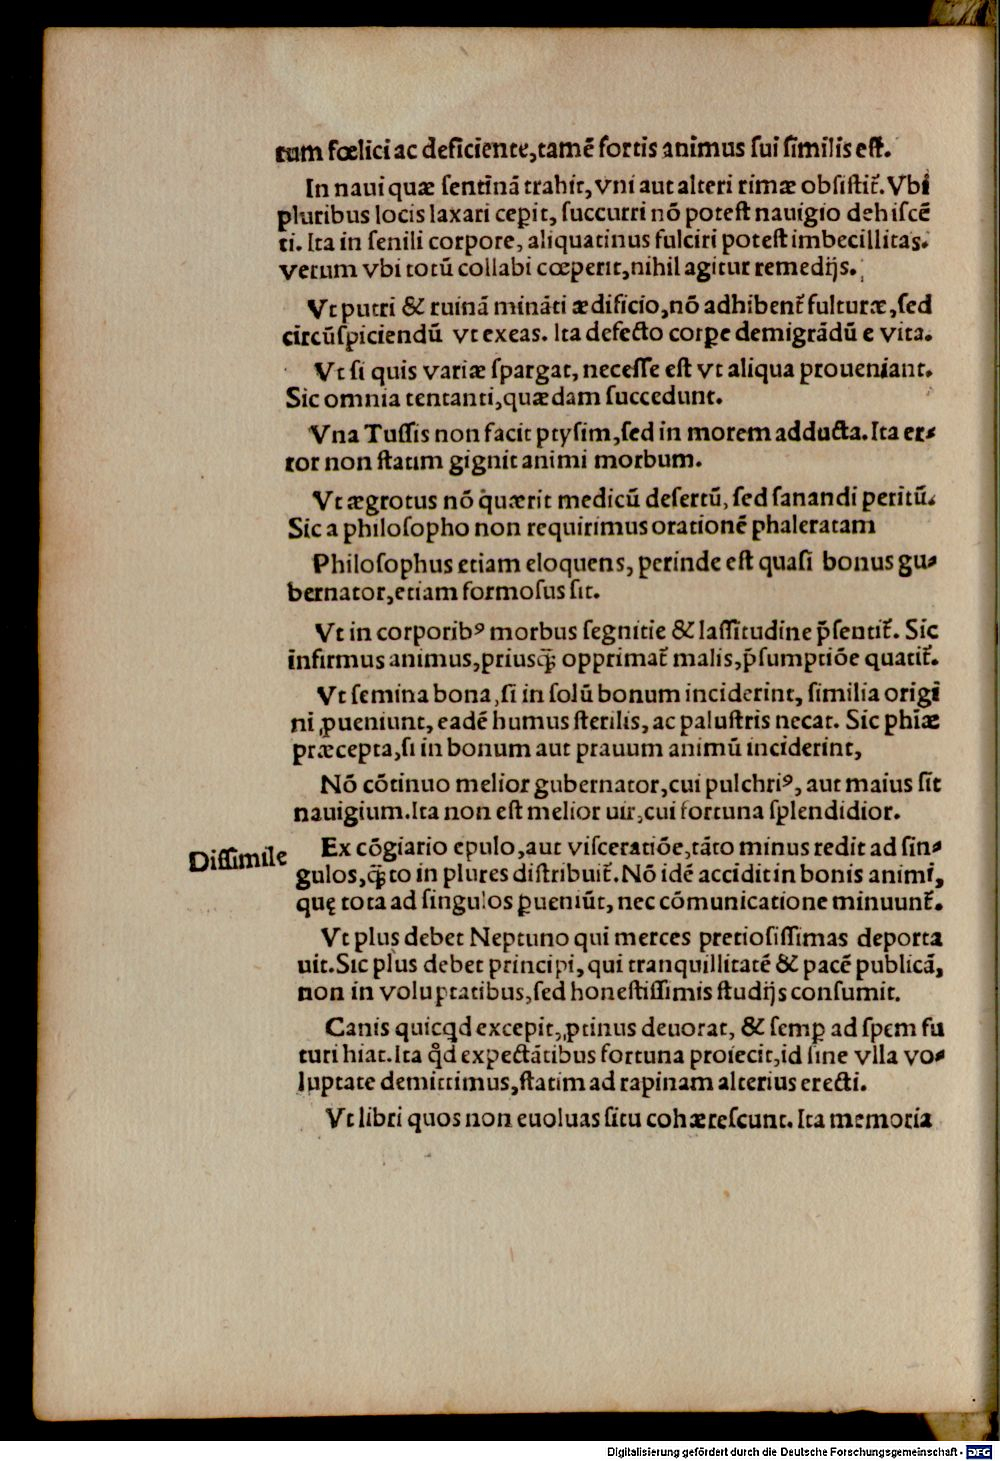 tum fœlici ac deficiente,tamẽ fortis animus ſui ſimilis eſt.
In naui quæ ſentinã trahit, vni aut alteri rimæ obſiſtit̃. Vbi
pluribus locis laxari cepit, ſuccurri nõ poteſt nauigio dehiſcẽ
ti. Ita in ſenili corpore, aliquatinus fulciri poteſt imbecillitas.
verum vbi totũ collabi cœperit,nihil agitur remedijs.
Vt putri & ruinã minãti ædificio,nõ adhibent̃ fulturæ,ſed
circũſpiciendũ vt exeas. Ita defecto corꝑe demigrãdũ e vita.
Vt ſi quis variæ ſpargat, neceſſe eſt vt aliqua proueniant.
Sic omnia tentanti,quædam ſuccedunt.
Vna Tuſſis non facit ptyſim,ſed in morem adducta. Ita er⸗
ror non ſtatim gignit animi morbum.
Vt ægrotus nõ quærit medicũ deſertũ, ſed ſanandi peritũ.
Sic a philoſopho non requirimus orationẽ phaleratam
Philoſophus etiam eloquens, perinde eſt quaſi bonus gu⸗
bernator,etiam formoſus ſit.
Vt in corporibꝰ morbus ſegnitie & laſſitudine p̃ſentit̃. Sic
infirmus animus,priusq̃; opprimat̃ malis,p̃ſumptiõe quatit̃.
Vt ſemina bona,ſi in ſolũ bonum inciderint, ſimilia origi
ni ꝓueniunt, eadẽ humus ſterilis, ac paluſtris necat. Sic phiæ
præcepta,ſi in bonum aut prauum animũ inciderint,
Nõ cõtinuo melior gubernator,cui pulchriꝰ, aut maius ſit
nauigium.Ita non eſt melior uir,cui fortuna ſplendidior.
Diſſimile
Ex cõgiario epulo,aut viſceratiõe,tãto minus redit ad ſin⸗
gulos,q̃;to in plures diſtribuit̃.Nõ idẽ accidit in bonis animi,
quę tota ad ſingulos ꝑueniũt, nec cõmunicatione minuunt̃.
Vt plus debet Neptuno qui merces pretioſiſſimas deporta
uit.Sic plus debet principi, qui tranquillitatẽ & pacẽ publicã,
non in voluptatibus,ſed honeſtiſſimis ſtudijs conſumit.
Canis quicꝗd excepit,ꝓtinus deuorat, & ſemꝑ ad ſpem fu
turi hiat.Ita qd̊ expectãtibus fortuna proiecit,id ſine vlla vo⸗
luptate demittimus,ſtatim ad rapinam alterius erecti.
Vt libri quos non euoluas ſitu cohæreſcunt. Ita memoria
Digitalisierung gefördert durch die Deutsche Forschungsgemeinschaft - DFG